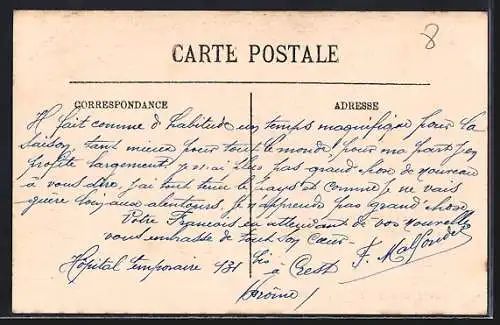 8
CARTE POSTALE
CORRESPONDANCE
ADRESSE
Il fait comme d habitude un temps magnifique pour la
saison, tant mieux pour tout le monde, pour ma part j'en
profite largement, je n'ai plus pas grand chose de nouveau
à vous dire, j'ai tout le pays et comme je ne vais
guère aux alentours, je n'apprends pas grand chose
Votre Français en attendant de vos nouvelles
vous embrasse de tout son Cœur-
F. Malfonde
Hôpital temporaire 131 bis
à Crest
Drôme